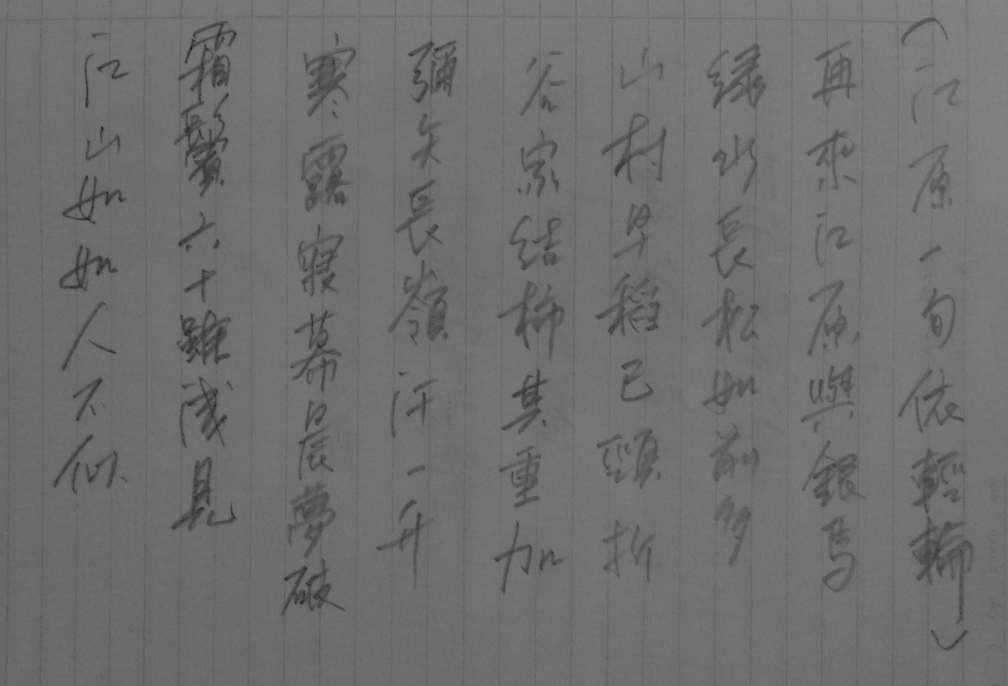 (江原一旬依輕輪)
再來江原與銀馬
綠水長松如前多
山村早稻已頭折
谷家結柿其重加
彌矢長嶺汗一升
寒露寢幕晨夢破
霜鬢六十雖識見
江山如如人不似